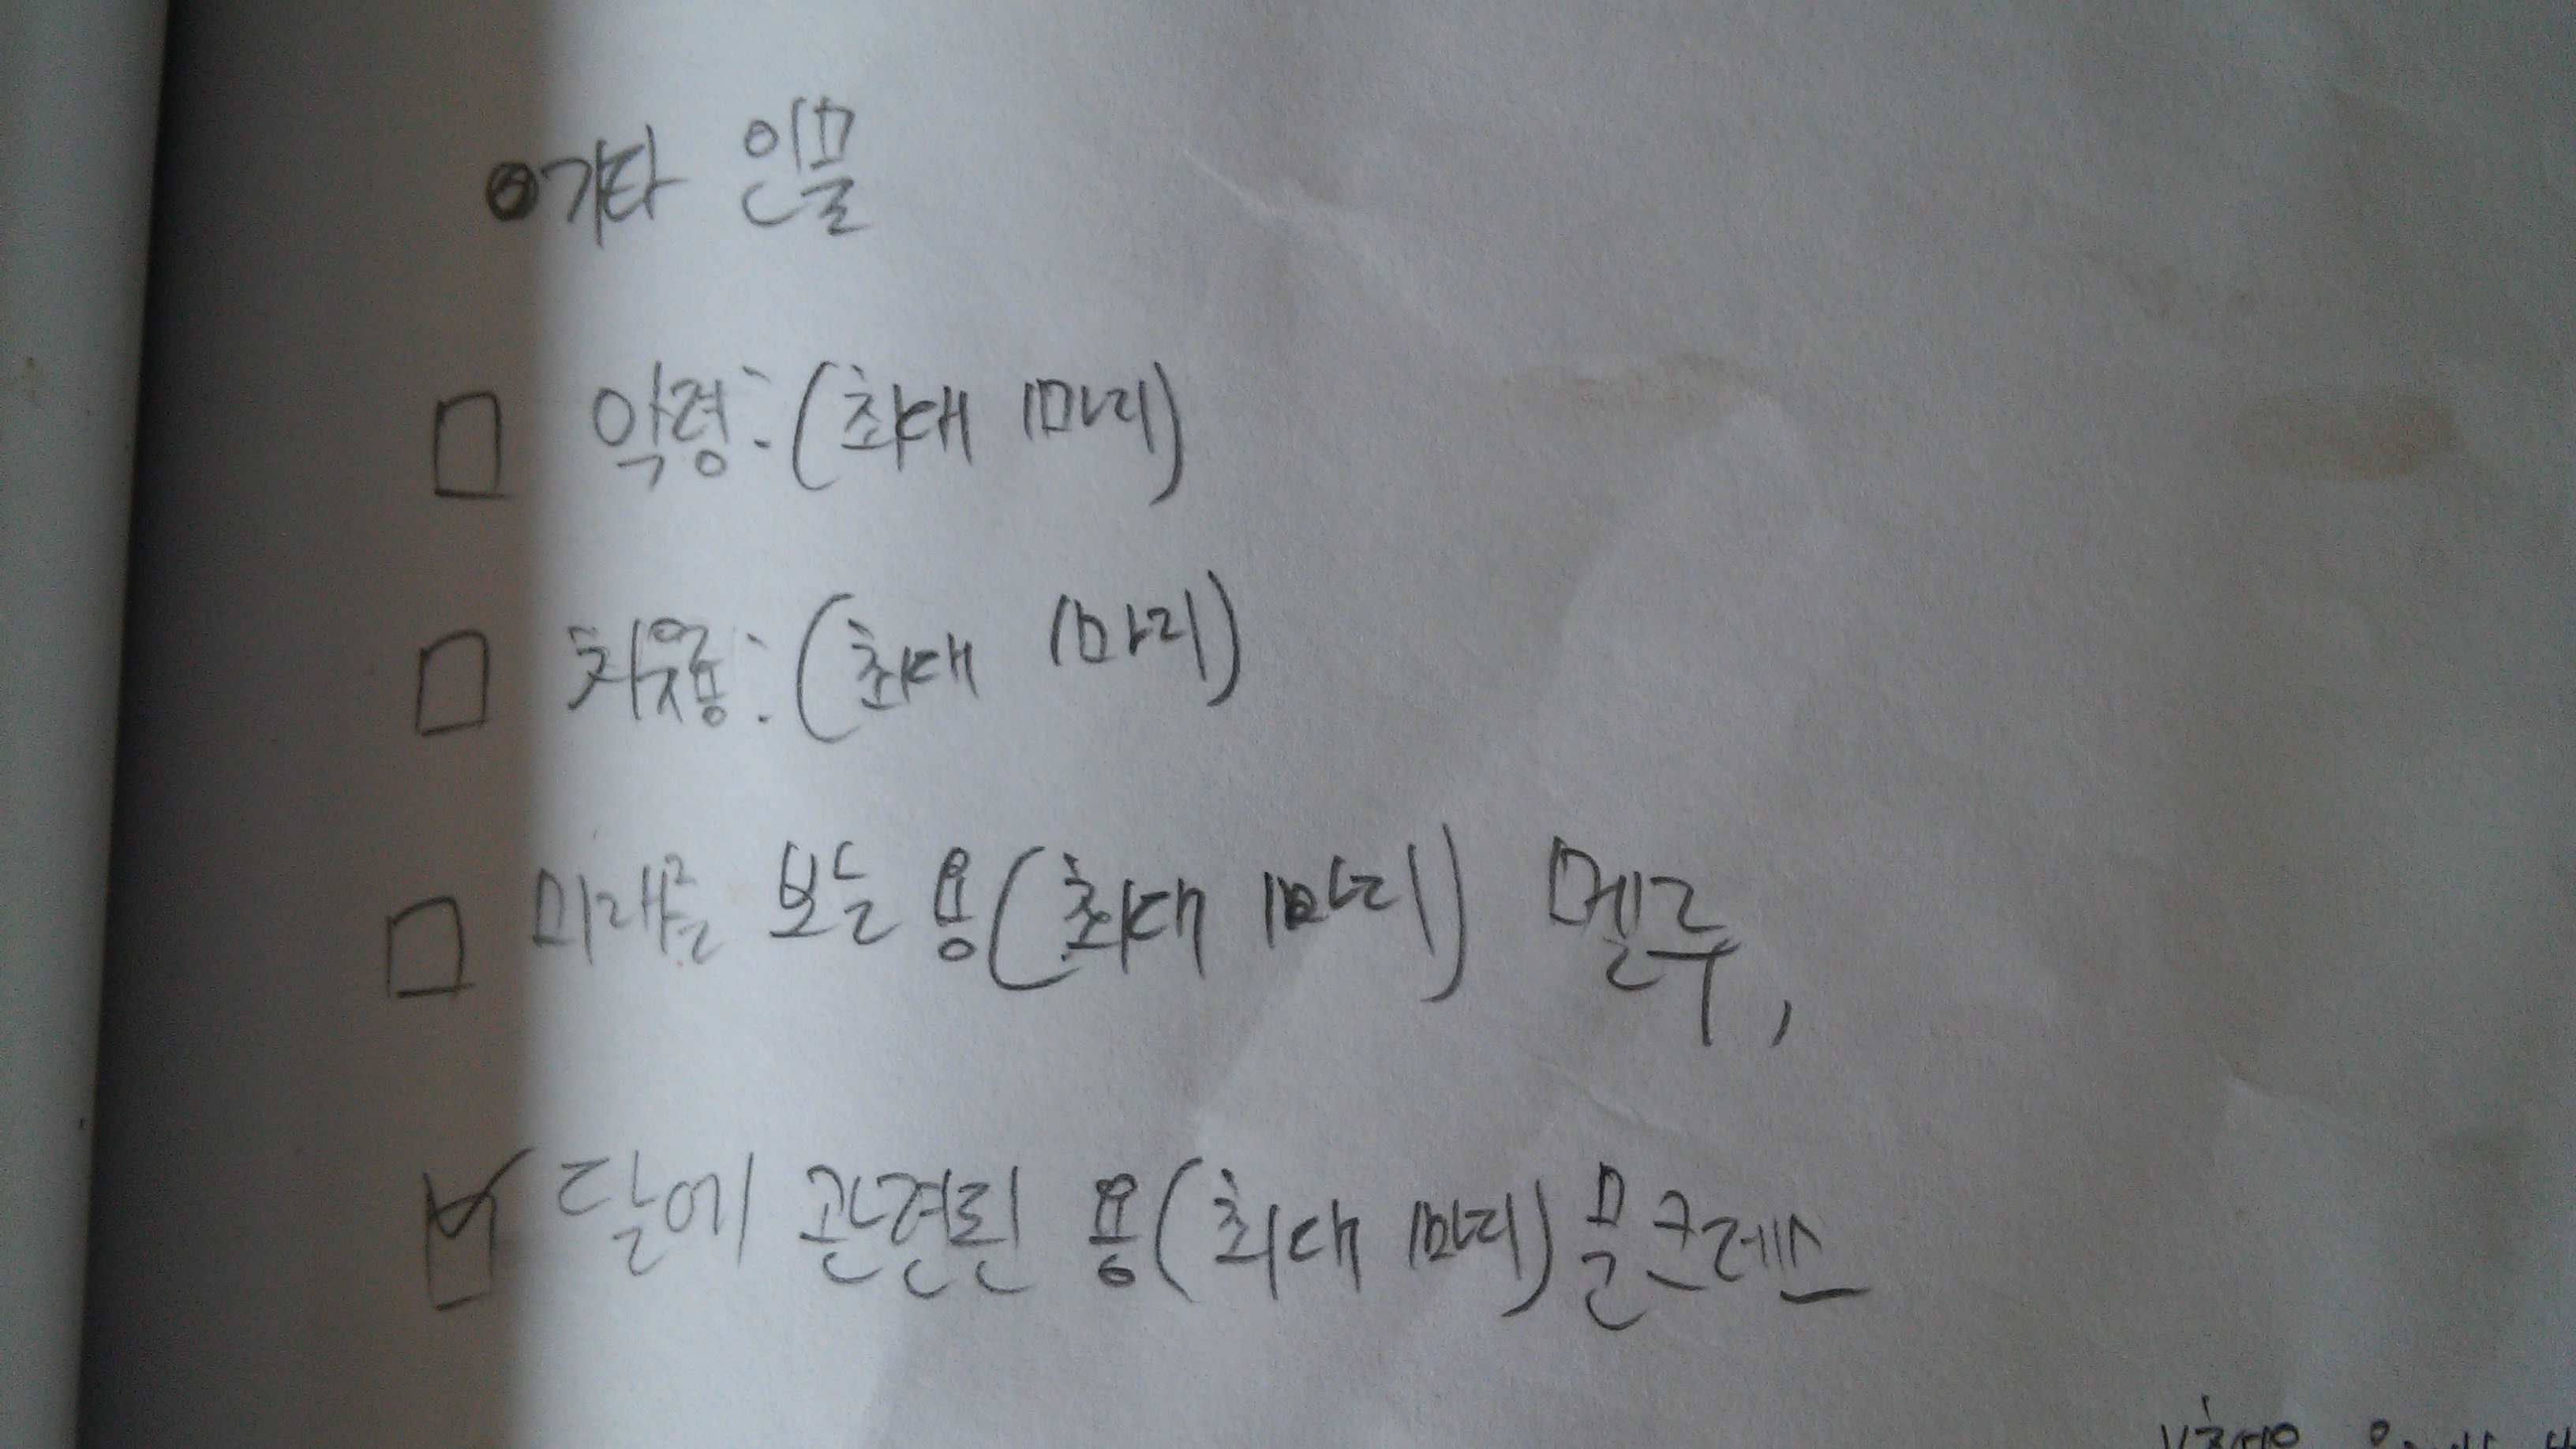 ●기타 인물
□ 악령:(최대 1마리)
□ 치유룡:(최대 1마리)
□ 미래를 보는 용(최대 1마리) 멜루,
☑ 달에 관련된 용(최대 1마리) 문크레스